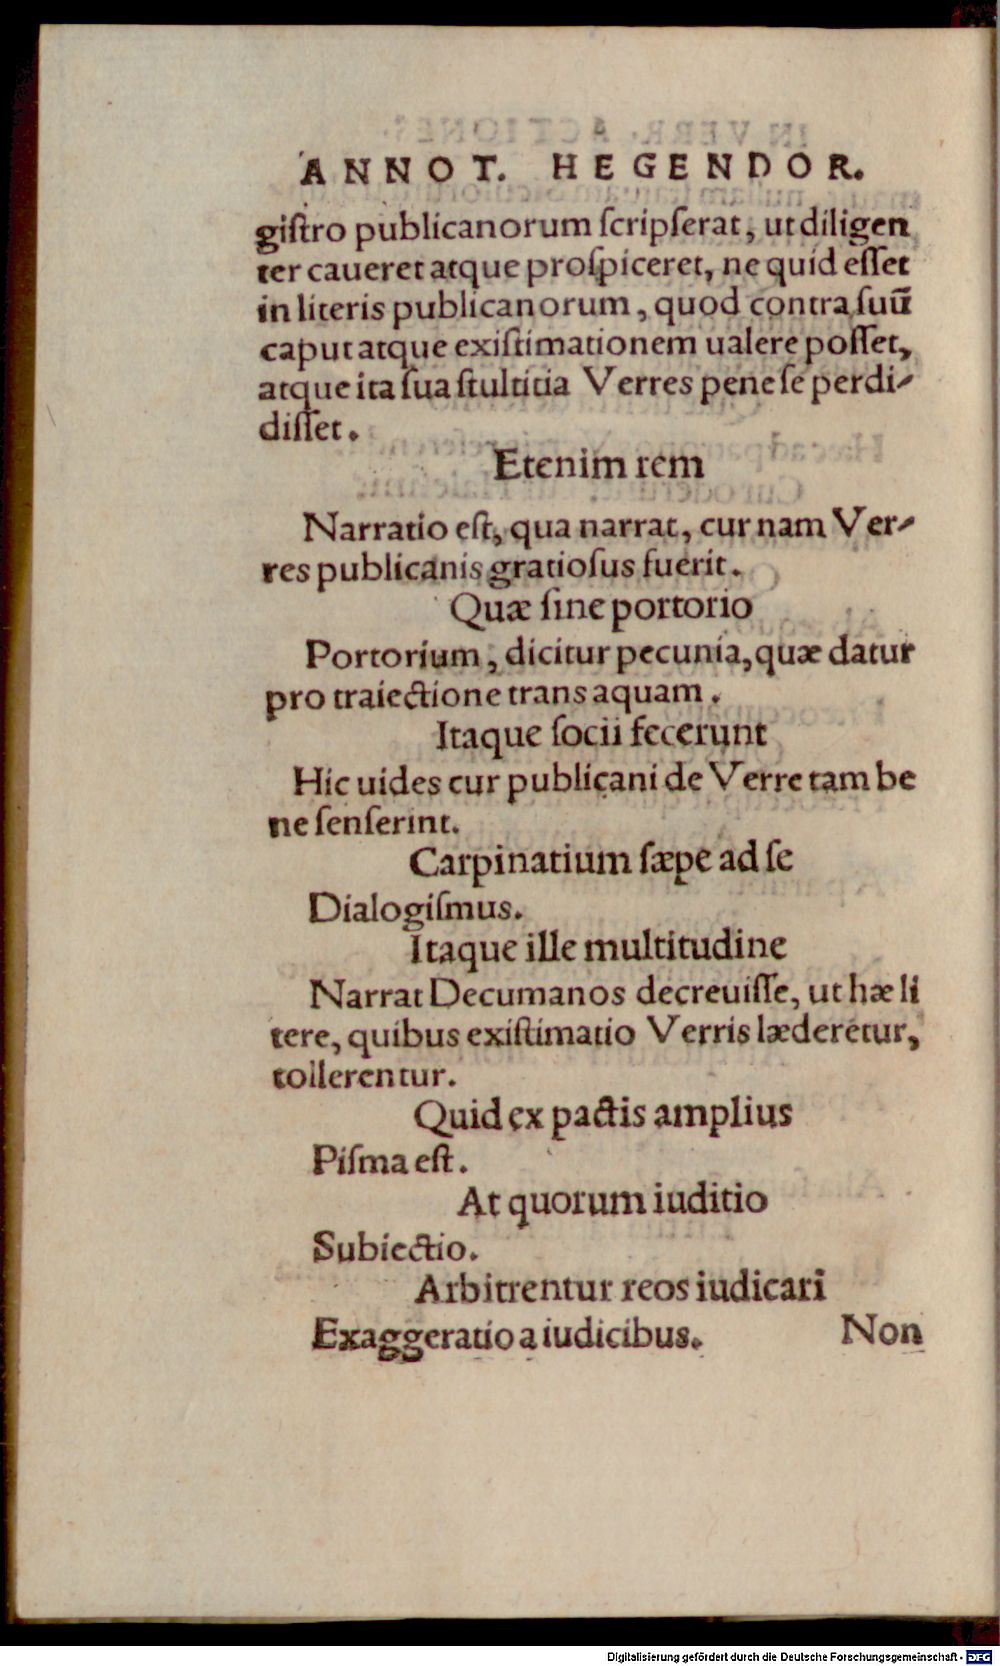 ANNOT. HEGENDOR.
giſtro publicanorum ſcripſerat, ut diligen
ter caueret atque proſpiceret, ne quid eſſet
in literis publicanorum, quod contra ſuū
caput atque exiſtimationem ualere poſſet,
atque ita ſua ſtultitia Verres pene ſe perdi-
diſſet.
Etenim rem
Narratio eſt, qua narrat, cur nam Ver-
res publicanis gratioſus fuerit.
Quæ ſine portorio
Portorium, dicitur pecunia, quæ datur
pro traiectione trans aquam.
Itaque ſocii fecerunt
Hic uides cur publicani de Verre tam be
ne ſenſerint.
Carpinatium ſæpe ad ſe
Dialogiſmus.
Itaque ille multitudine
Narrat Decumanos decreuiſſe, ut hæ li
tere, quibus exiſtimatio Verris læderetur,
tollerentur.
Quid ex pactis amplius
Piſma eſt.
At quorum iuditio
Subiectio.
Arbitrentur reos iudicari
Exaggeratio a iudicibus. Non
Digitalisierung gefördert durch die Deutsche Forschungsgemeinschaft - DFG